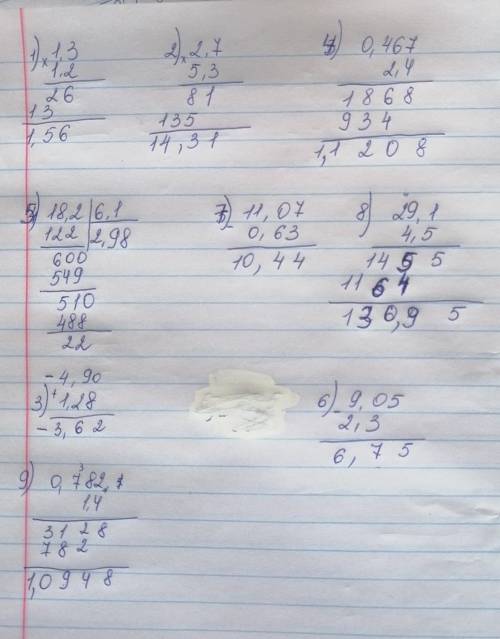 1) × 1,3
1,2
26
13
1,56
2) × 2,7
5,3
81
135
14,31
4) 0,467
2,4
1868
934
1,1208
5) 18,2 | 6,1
122 | 2,98
600
549
510
488
22
7) - 11,07
0,63
10,44
8) 29,1
4,5
1455
1164
130,95
- 4,90
3) + 1,28
- 3,62
6) - 9,05
2,3
6,75
9) 0,782
1,4
3128
782
1,0948